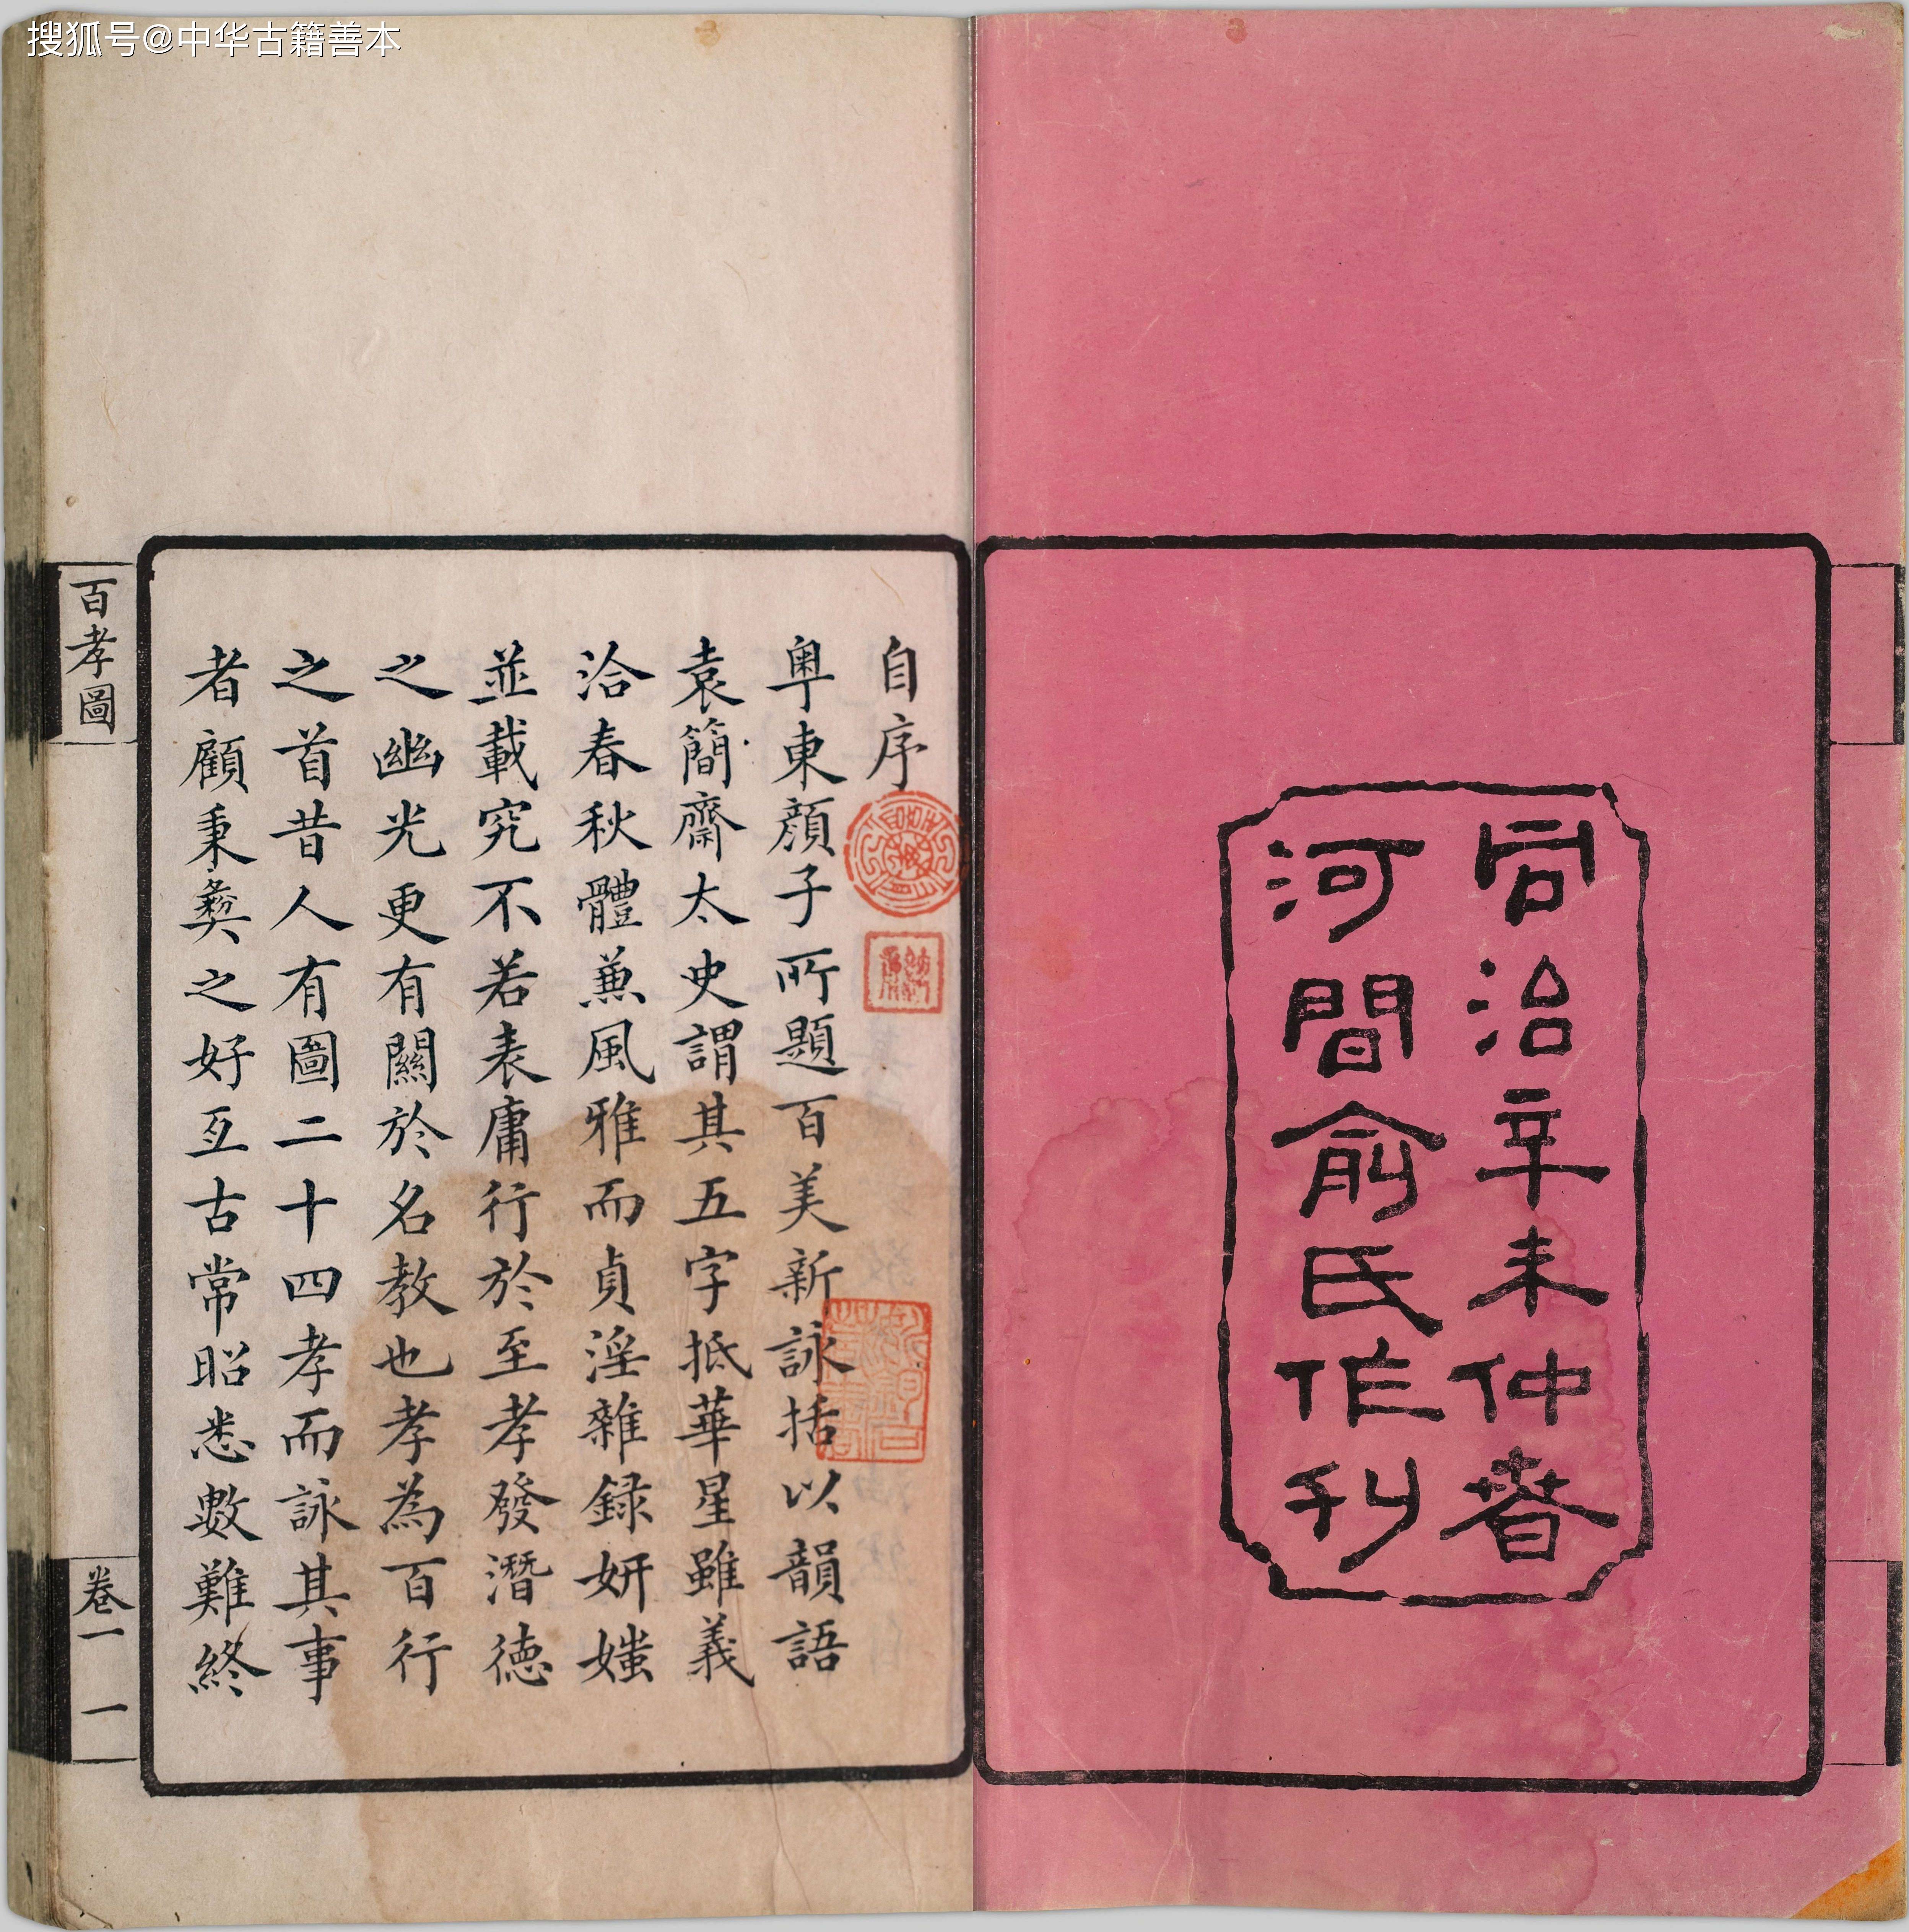 搜狐号@中华古籍善本
同治辛未仲春
河間俞氏作刊
自序
粤東顔子所題百美新詠括以韻語
袁簡齋太史謂其五字抵華星雖義
洽春秋體兼風雅而貞淫雜録妍媸
並載究不若表庸行於至孝發潛德
之幽光更有關於名教也孝為百行
之首昔人有圖二十四孝而詠其事
者顧秉彝之好亙古常昭悉數難終
百孝圖
卷一
一